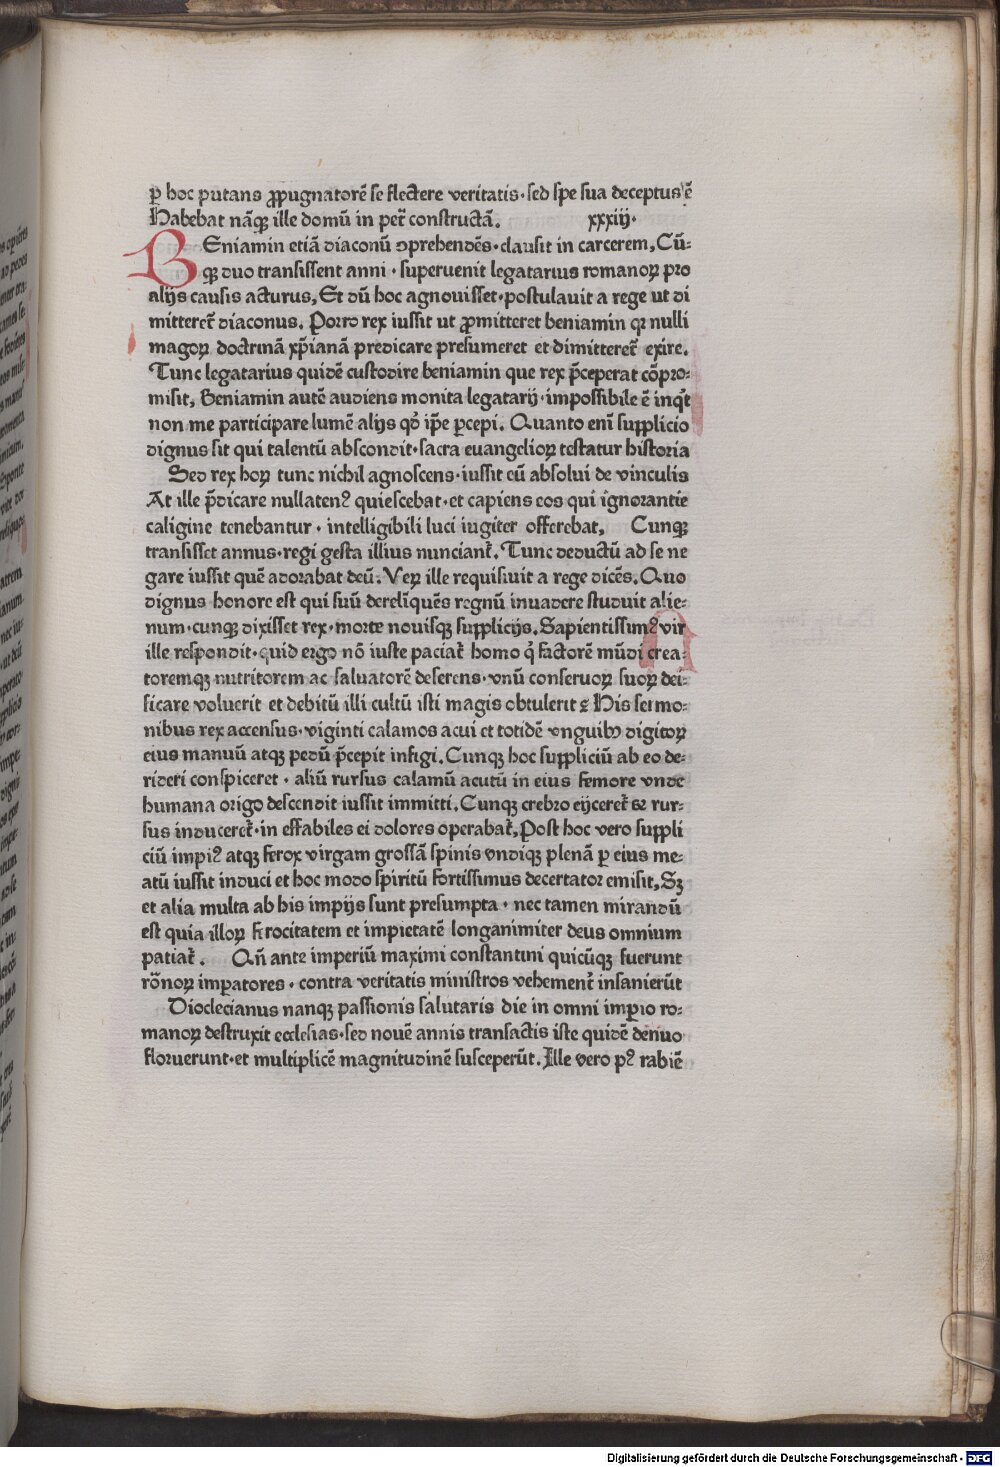 ꝑ hoc putans ꝓpugnatorē se flectere veritatis·sed spe sua deceptus ē
Habebat nāqꝫ ille domū in petꝰ constructā. xxxiij·
BEniamin etiā diaconū ꝯprehendēs·clausit in carcerem, Cū⸗
qꝫ duo transissent anni·superuenit legatarius romanoꝝ pro
alijs causis acturus, Et dū hoc agnouisset·postulauit a rege ut di
mitteret̄ diaconus. Porro rex iussit ut ꝓmitteret beniamin qꝛ nulli
magoꝝ doctrinā xp̄ianā predicare presumeret et dimitteret̄ exire.
Tunc legatarius quidē custodire beniamin que rex p̄ceperat cōpro⸗
misit, Beniamin autē audiens monita legatarij·impossibile ē inqͥt
non me participare lumē alijs qd̓ ip̄e ꝑcepi. Quanto enī supplicio
dignus sit qui talentū abscondit·sacra euangelioꝝ testatur historia
Sed rex hoꝝ tunc nichil agnoscens·iussit eū absolui de vinculis
At ille p̄dicare nullatenꝰ quiescebat·et capiens eos qui ignorantie
caligine tenebantur·intelligibili luci iugiter offerebat, Cunqꝫ
transisset annus·regi gesta illius nunciant̄. Tunc deductū ad se ne
gare iussit quē adorabat deū. Veꝝ ille requisiuit a rege dicēs. Quo
dignus honore est qui suū derelīquēs regnū inuadere studuit alie⸗
num·cunqꝫ dixisset rex·morte nouisqꝫ supplicijs. Sapientissimꝰ vir
ille respondit·quid ergo nō iuste paciat̄ homo qͥ factorē mūdi crea⸗
toremqꝫ nutritorem ac saluatorē deserens·vnū conseruoꝝ suoꝝ dei⸗
ficare voluerit et debitū illi cultū isti magis obtulerit ? His sermo⸗
nibus rex accensus·viginti calamos acui et totidē vnguibꝫ digitoꝝ
eius manuū atqꝫ pedū p̄cepit infigi. Cunqꝫ hoc suppliciū ab eo de⸗
rideri conspiceret·aliū rursus calamū acutū in eius femore vnde
humana origo descendit iussit immitti. Cunqꝫ crebro eijceret̄ & rur⸗
sus induceret̄·in effabiles ei dolores operabat̄, Post hoc vero suppli
ciū impiꝰ atqꝫ ferox virgam grossā spinis vndiqꝫ plenā ꝑ eius me⸗
atū iussit induci et hoc modo spiritū fortissimus decertator emisit, Sꝫ
et alia multa ab his impijs sunt presumpta·nec tamen mirandū
est quia illoꝝ ferocitatem et impietatē longanimiter deus omnium
patiat̄. Qn̄ ante imperiū maximi constantini quicūqꝫ fuerunt
rōnoꝝ imꝑatores·contra veritatis ministros vehement̄ insanierūt
Dioclecianus nanqꝫ passionis salutaris die in omni imꝑio ro⸗
manoꝝ destruxit ecclesias·sed nouē annis transactis iste quidē denuo
floruerunt·et multiplicē magnitudinē susceperūt. Ille vero pꝰ rabiē
Digitalisierung gefördert durch die Deutsche Forschungsgemeinschaft - DFG